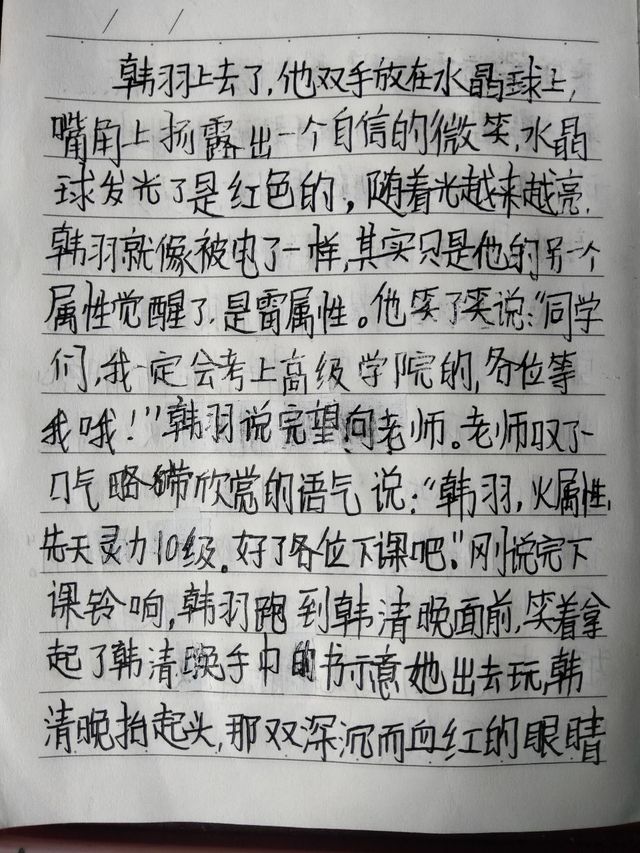 韩羽上去了,他双手放在水晶球上,
嘴角上扬露出一个自信的微笑,水晶
球发光了是红色的,随着光越来越亮.
韩羽就像被电了一样,其实只是他的另一个
属性觉醒了.是雷属性。他笑了笑说:“同学
们,我一定会考上高级学院的,各位等
我哦!”韩羽说完望向老师。老师叹了一
口气略带欣赏的语气说:“韩羽,火属性,
先天灵力10级。好了各位下课吧.”刚说完下
课铃响,韩羽跑到韩清晚面前,笑着拿
起了韩清晚手中的书示意她出去玩,韩
清晚抬起头,那双深沉而血红的眼睛